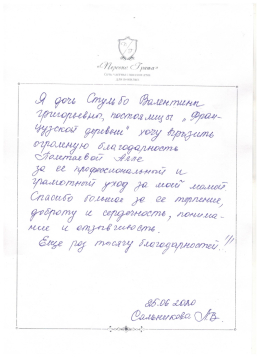 «Первая Грата»
Я дочь Стулбо Валентины
Григорьевны, постоялицы „Фран-
цузской деревни" хочу выразить
огромную благодарность
Полтаевой Алле
за её профессиональный и
грамотный уход за моей мамой
Спасибо большое за её терпение,
доброту и сердечность, понима-
ние и отзывчивость.
Еще раз тысячу благодарностей!!!
25.06 2020
Сальникова Л.В.